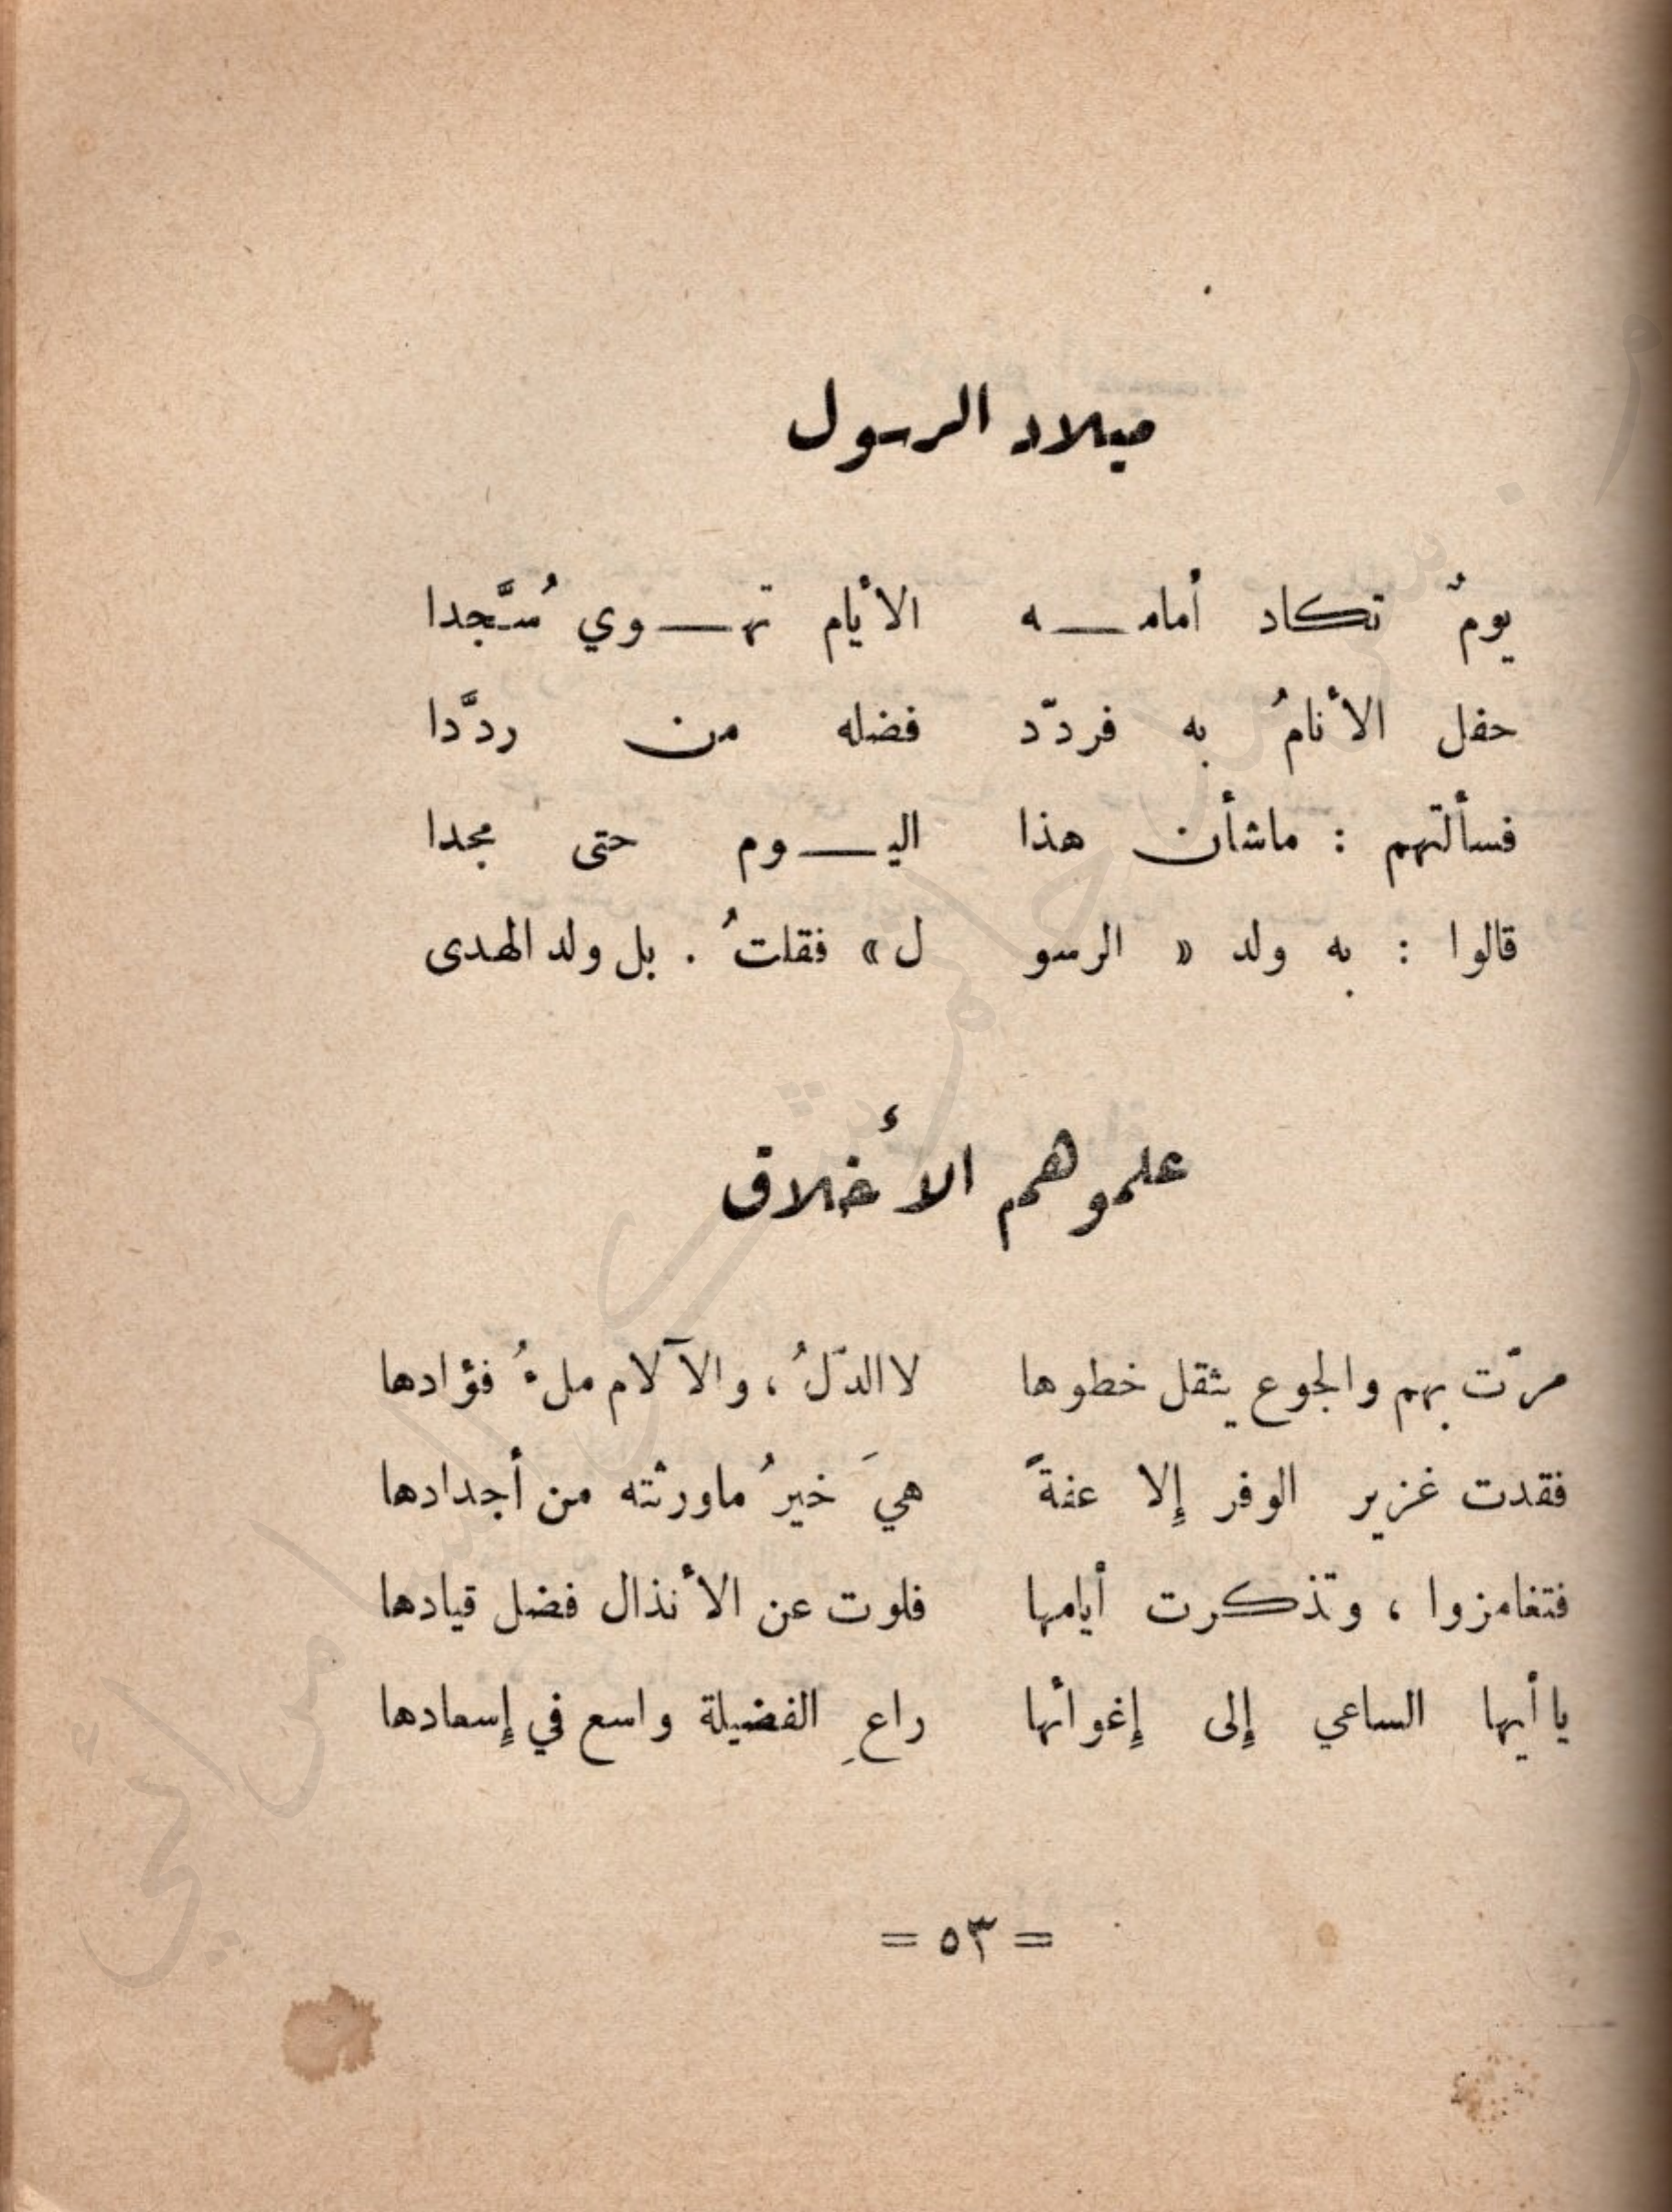 ميلاد الرسول
يومٌ تكاد أمامه الأيام تهوي سُجَّدا
حفل الأنامُ به فردّد فضله من ردَّدا
فسألتهم : ماشأن هذا اليوم حتى مجدا
قالوا : به ولد « الرسو ل » فقلتُ . بل ولد الهدى
علموهم الأخلاق
مرّت بهم والجوع يثقل خطوها لا الدّلُ ، والآلام ملءُ فؤادها
فقدت غزير الوفر إلا عفةً هيَ خيرُ ماورثته من أجدادها
فتغامزوا ، وتذكرت أيامها فلوت عن الأنذال فضل قيادها
يا أيها الساعي إلى إغوائها راعِ الفضيلة واسع في إسعادها
= ٥٣ =